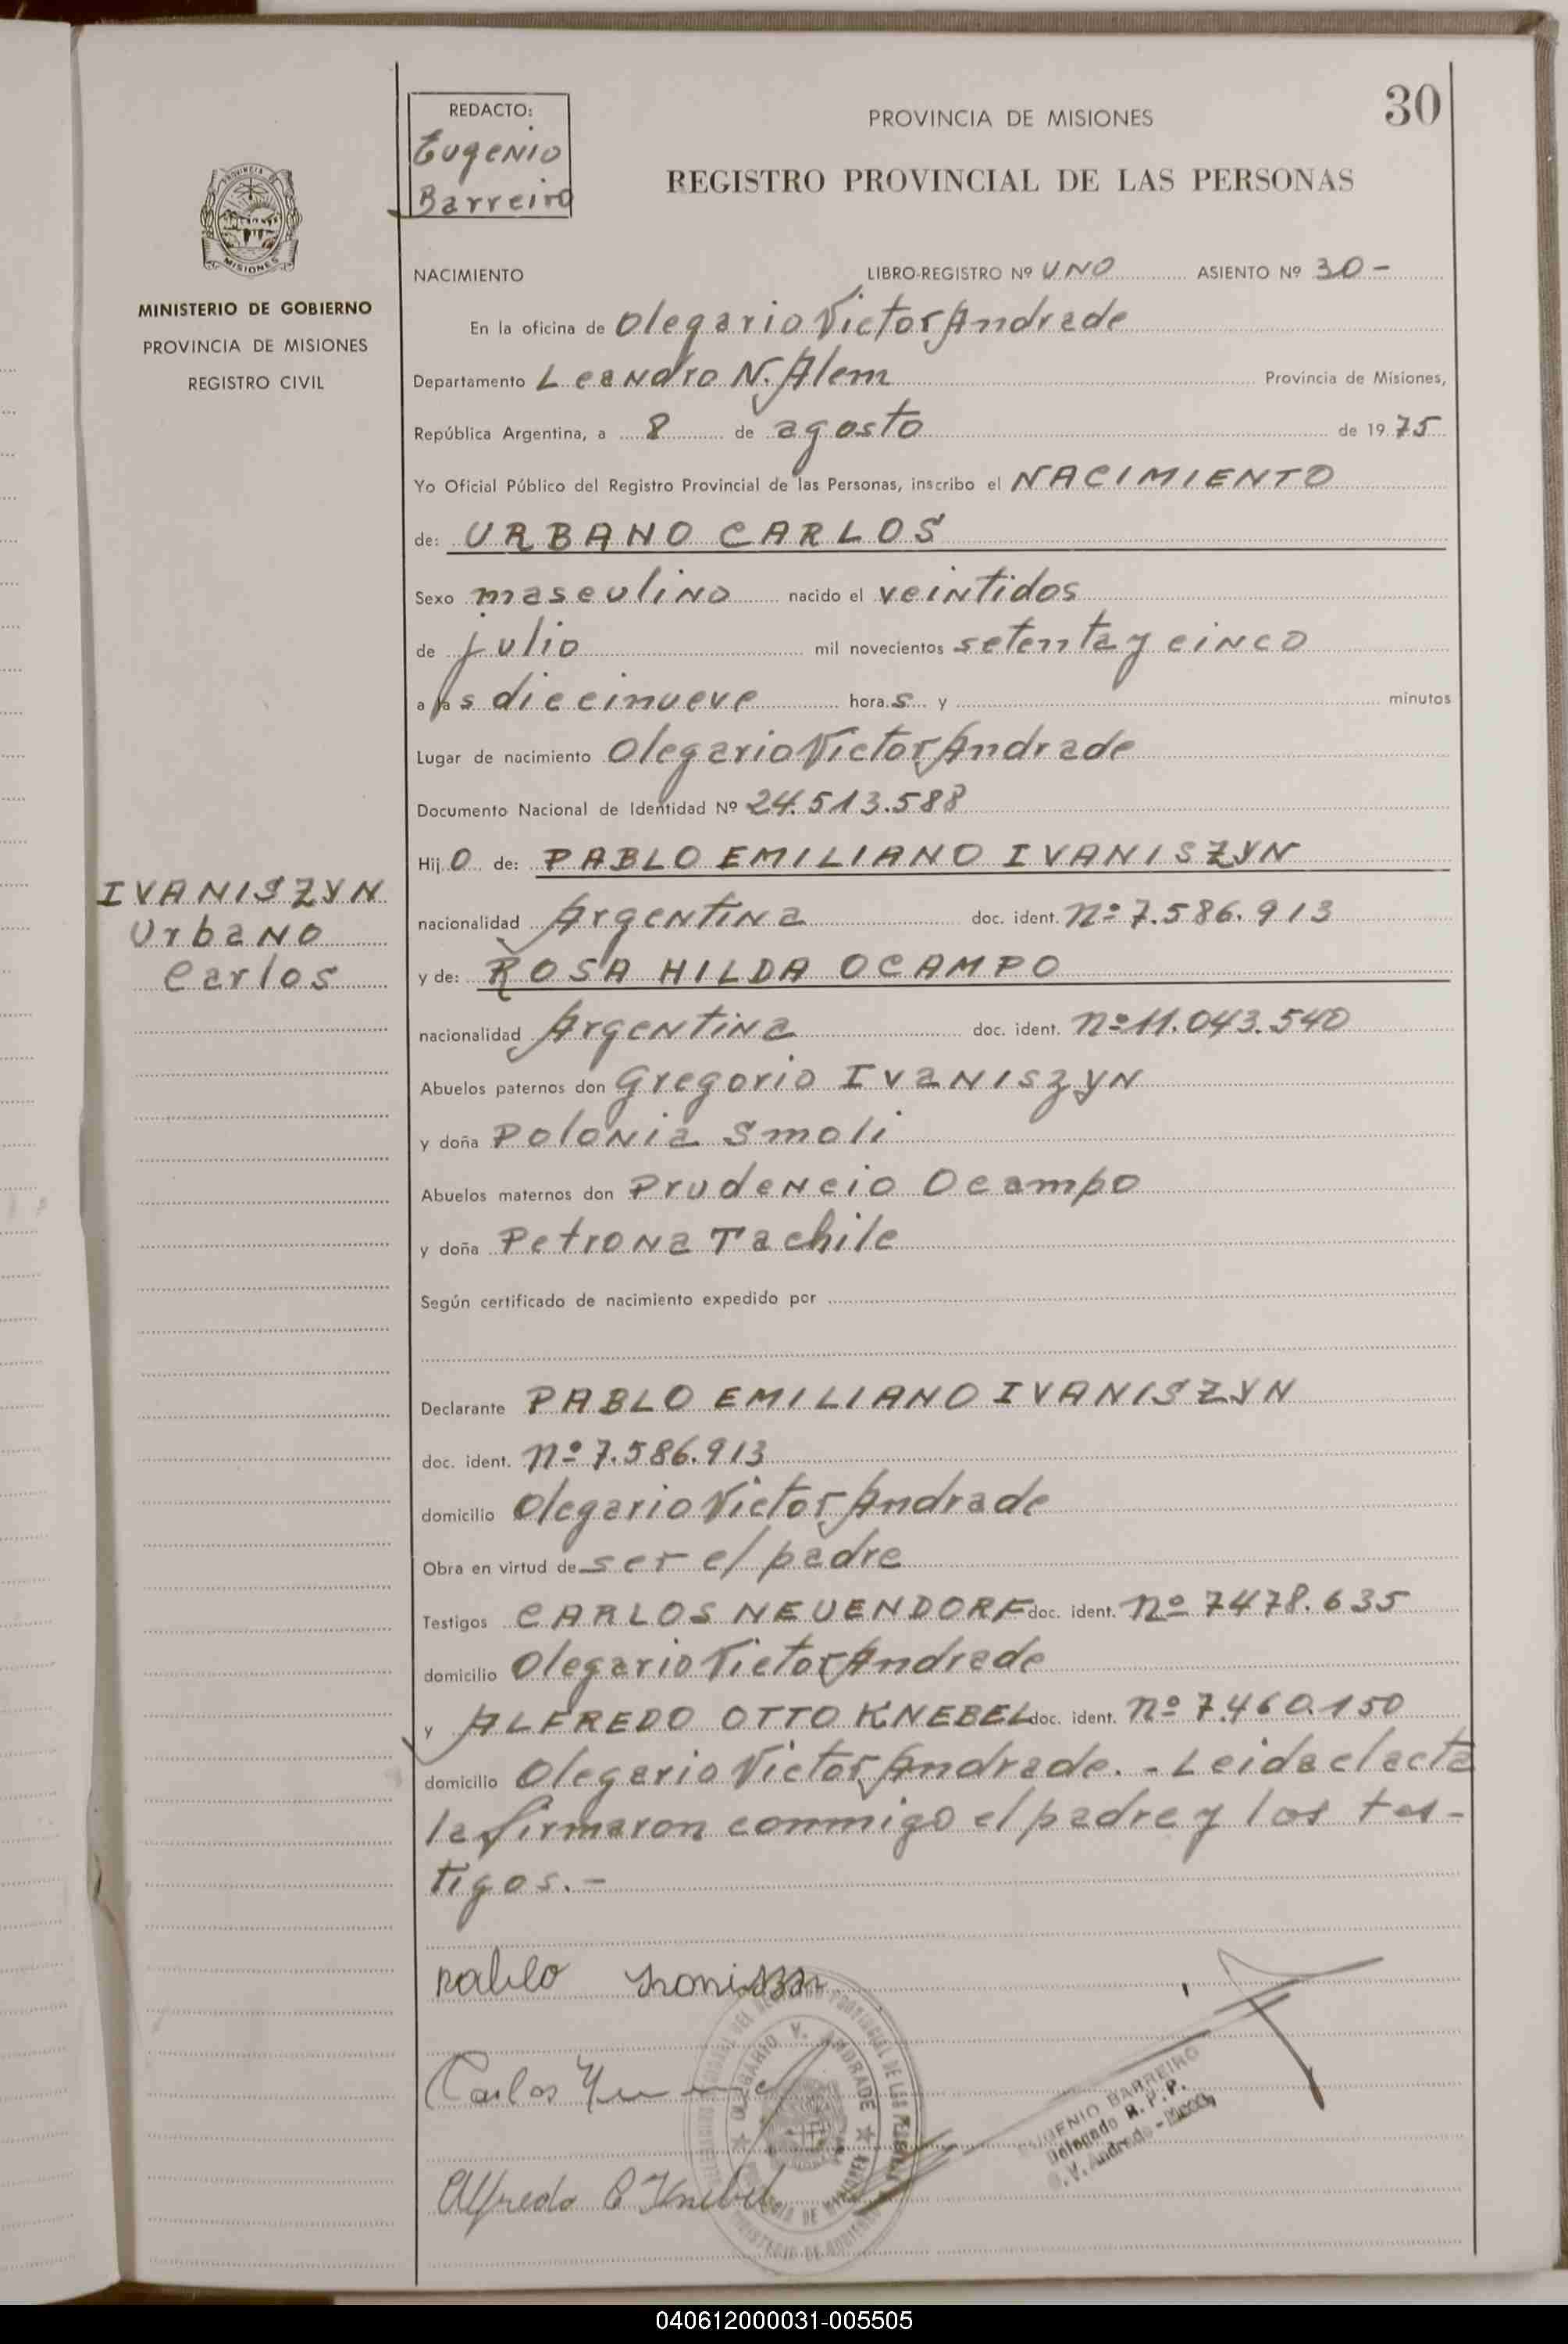 30
REDACTO:
Eugenio
Barreiro
PROVINCIA DE MISIONES
REGISTRO PROVINCIAL DE LAS PERSONAS
PROVINCIA DE
MISIONES
MINISTERIO DE GOBIERNO
PROVINCIA DE MISIONES
REGISTRO CIVIL
NACIMIENTO LIBRO-REGISTRO Nº UNO ASIENTO Nº 30-
En la oficina de Olegario Victor Andrade
Departamento Leandro N. Alem Provincia de Misiones,
República Argentina, a 8 de agosto de 1975
Yo Oficial Público del Registro Provincial de las Personas, inscribo el NACIMIENTO
de: URBANO CARLOS
Sexo masculino nacido el veintidos
de julio mil novecientos setenta y cinco
a las diecinueve horas y minutos
Lugar de nacimiento Olegario Victor Andrade
Documento Nacional de Identidad Nº 24.513.588
Hijo de: PABLO EMILIANO IVANISZYN
IVANISZYN
Urbano
Carlos
nacionalidad Argentina doc. ident. nº 7.586.913
y de: ROSA HILDA OCAMPO
nacionalidad Argentina doc. ident. nº 11.043.540
Abuelos paternos don Gregorio Ivaniszyn
y doña Polonia Smoli
Abuelos maternos don Prudencio Ocampo
y doña Petrona Tachile
Según certificado de nacimiento expedido por
Declarante PABLO EMILIANO IVANISZYN
doc. ident. nº 7.586.913
domicilio Olegario Victor Andrade
Obra en virtud de ser el padre
Testigos CARLOS NEUENDORF doc. ident. nº 7478.635
domicilio Olegario Victor Andrade
y ALFREDO OTTO KNEBEL doc. ident. nº 7.460.150
domicilio Olegario Victor Andrade.- Leida el acta
la firmaron conmigo el padre y los tes-
tigos.-
Pablo
Carlos
Alfredo O Knebel
OLEGARIO V. ANDRADE
PROVINCIA DE MISIONES
MINISTERIO DE GOBIERNO
EUGENIO BARREIRO
Delegado R. P. P.
O. V. Andrade - Mnes.
040612000031-005505